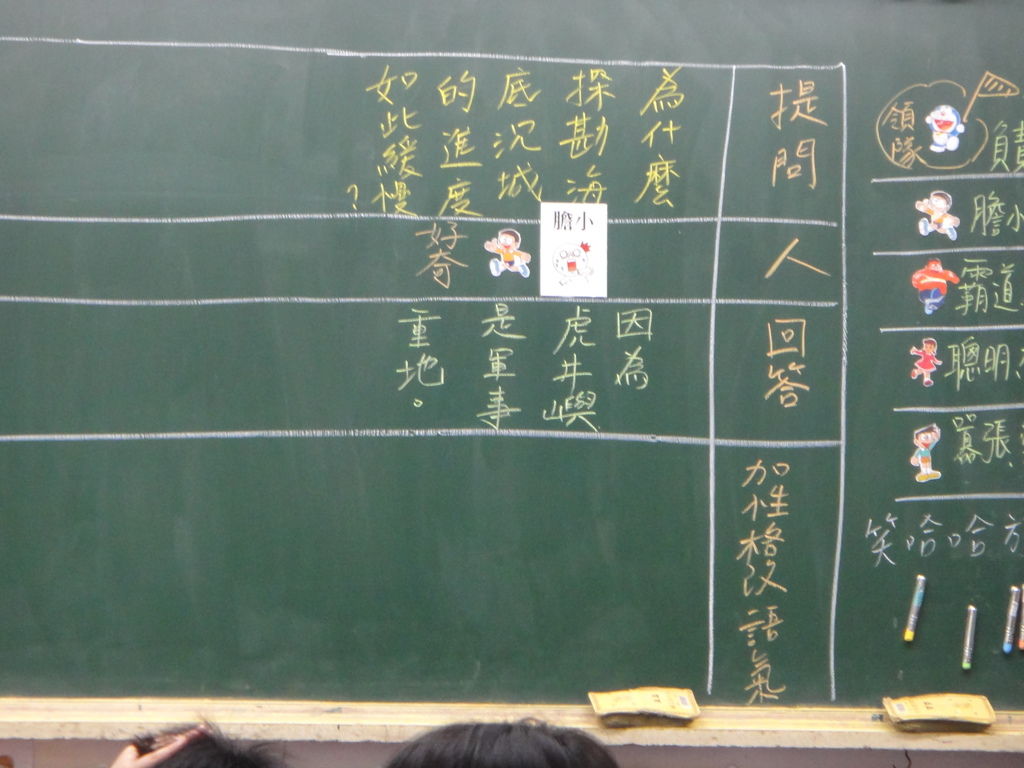 提問
為什麼
探勘海
底沉城
的進度
如此緩慢
？
人
膽小
好奇
回答
因為
虎井嶼
是軍事
重地。
加性格改語氣
領隊
負責
膽小
霸道
聰明
囂張
笑哈哈方